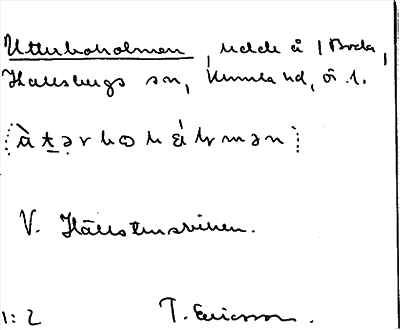 Utterboholmen, udde å 1 Boda,
Hallsbergs sn, Kumla hd, ör. l.
V. Hällstensviken.
1:2 T. Ericsson.